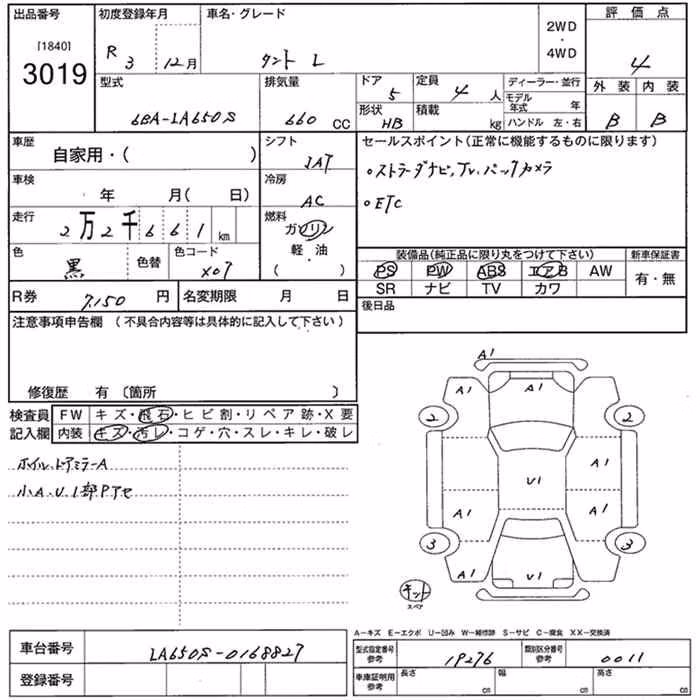 出品番号
[1840]
3019
初度登録年月
R 3 12月
車名・グレード
タント L
2WD
・
4WD
評価点
4
型式
6BA-LA650S
排気量
660 CC
ドア
5
定員
4 人
形状
HB
積載
kg
ディーラー・並行
モデル年式 年
ハンドル 左・右
外装 内装
B B
車歴
自家用・( )
シフト
IAT
セールスポイント(正常に機能するものに限ります)
・ストラーダナビ,Tv.バックカメラ
・ETC
車検
年 月( 日)
冷房
AC
走行
2万2千661 km
燃料
ガソリン
軽・油
( ・ )
色
黒
色替
色コード
X07
装備品(純正品に限り丸をつけて下さい)
新車保証書
PS PW ABS エアB AW
SR ナビ TV カワ
有・無
R券
7,150 円
名変期限 月 日
後日品
注意事項申告欄 (不具合内容等は具体的に記入して下さい)
修復歴 有 〔箇所 〕
検査員
記入欄
FW キズ・飛石・ヒビ割・リペア跡・X要
内装 キズ・汚レ・コゲ・穴・スレ・キレ・破レ
ホイル.ドアミラーA
小A.U1部Pアセ
A1
A1 A1
2 2
A1
U1
A1 A1
3 3
A1 U1
キット
スペア
A-キズ E-エクボ U-凹み W-補修跡 S-サビ C-腐食 XX-交換済
車台番号
LA650S-0168827
登録番号
型式指定番号
参考
19276
類別区分番号
参考
0011
車庫証明用
参考
長さ cm
幅 cm
高さ cm